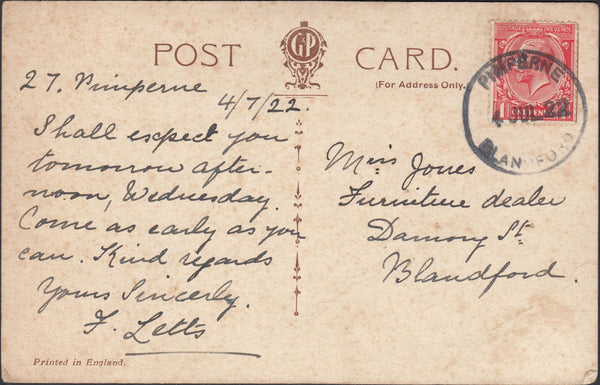 POST CARD.
(For Address Only.)
27. Pimperne
4/7/22.
Shall expect you
tomorrow after-
noon, Wednesday.
Come as early as you
can. Kind regards
Yours Sincerely.
F. Letts
Miss Jones
Furniture dealer
Damory St
Blandford.
PIMPERNE
BLANDFORD
POSTAGE REVENUE
ONE PENNY
Printed in England.